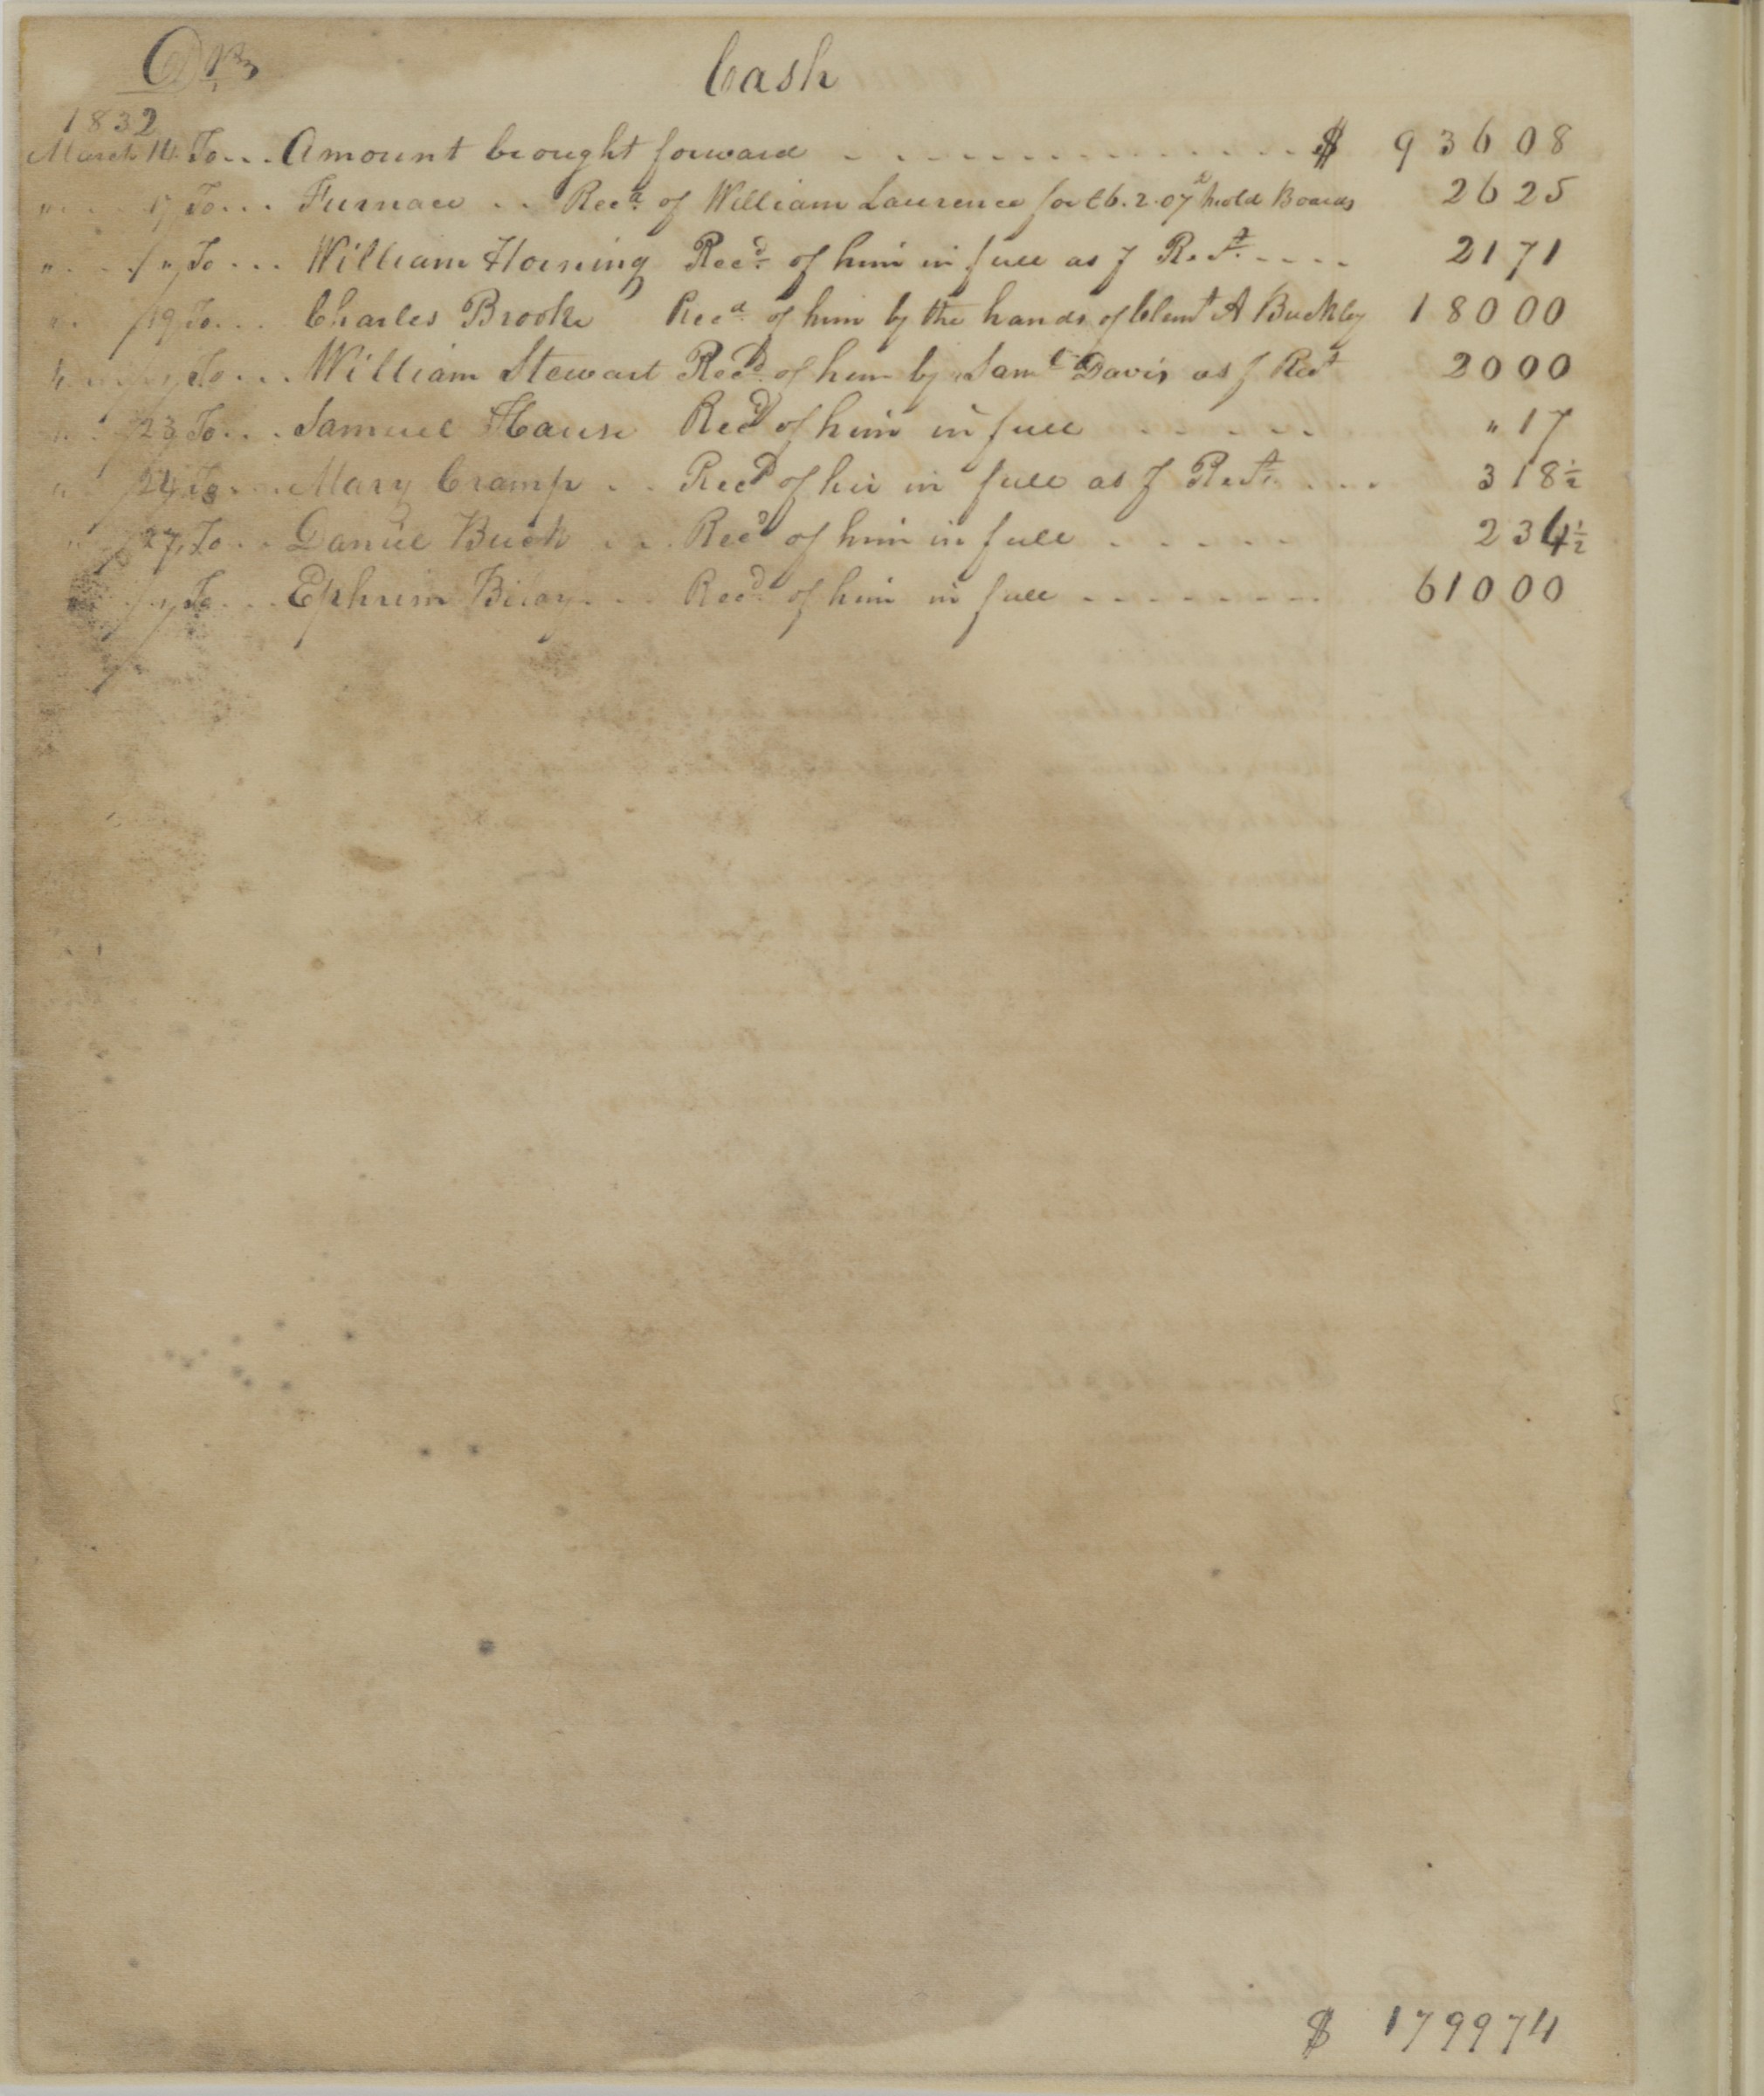 Drs Cash
1832
March 14 To... Amount brought forward . . . . . . . . . . . . . $ 936 08
" . . . 17 To... Furnace . . Recd of William Laurence for C6.2.07 mold Boards 26 25
" . . / " To... William Horning Recd of him in full as J Rect. . . . 21 71
" . /19 To... Charles Brooke Recd of him by the hands of Clemt A Buckley 180 00
" " To... William Stewart Recd of him by Saml Davis as J Rect 20 00
" . /23 To... Samuel Hause Recd of him in full . . . . . " 17
" /24 To... Mary Cramp . . Recd of her in full as J Rect. . . . 3 18½
" /27 To... Daniel Buck . . . Recd of him in full . . . . . 2 34½
" / " To... Ephrim . . . Recd of him in full . . . . . . . 610 00
$ 1799 74